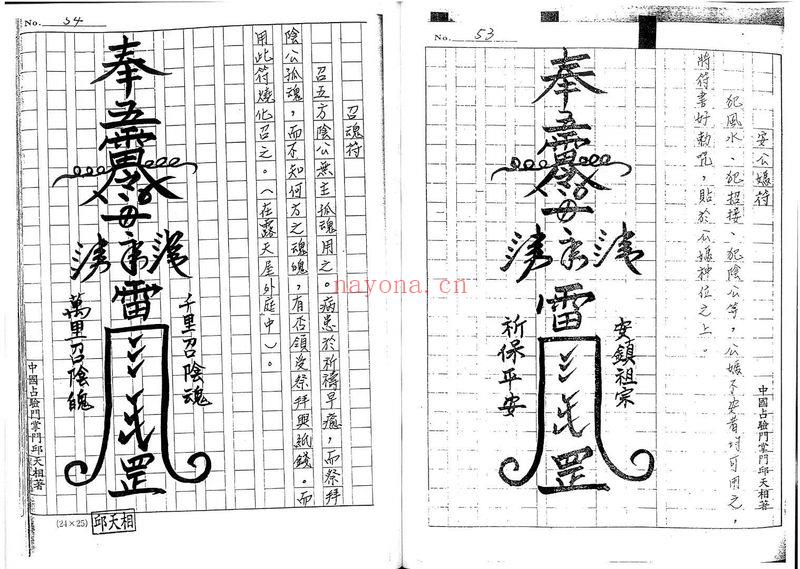 No. 53
安公媽符
犯風水、犯招接、犯陰公等，公媽不安者均可用之，
將符書好敕咒，貼於公媽神位之上。
奉
雷
安鎮祖宗
祈保平安
罡
中國占驗門掌門邱天相著
No. 54
召魂符
召五方陰公無主孤魂用之。病患於祈禱早癒，而祭拜
陰公孤魂，而不知何方之魂魄，有否領受祭拜與紙錢。而
用此符燒化召之。（在露天屋外庭中）。
奉
雷
千里召陰魂
萬里召陰魄
罡
中國占驗門掌門邱天相著
(24×25)
邱天相
nayona.cn